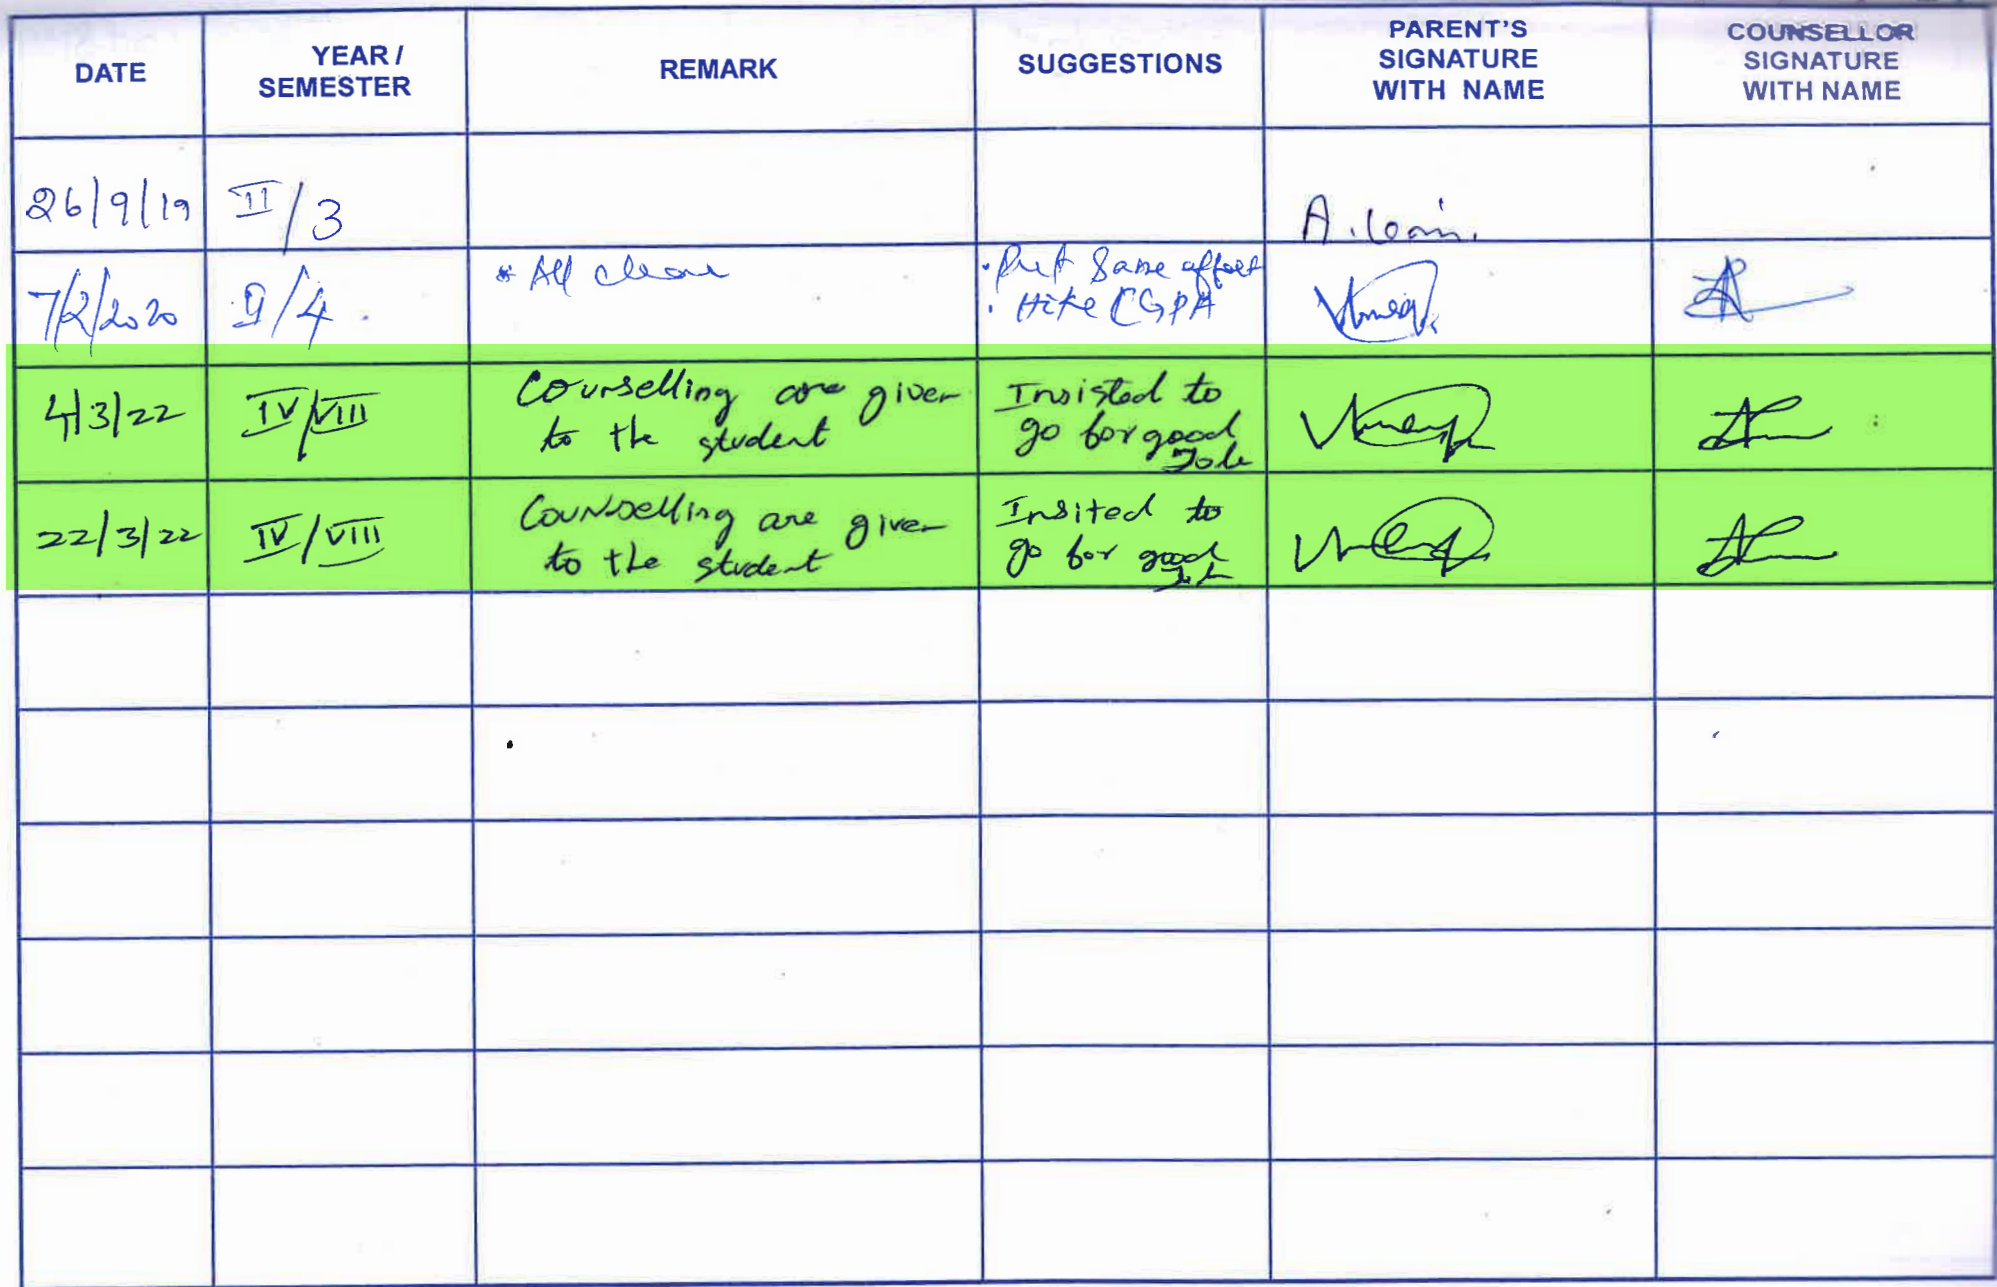 DATE
YEAR /
SEMESTER
REMARK
SUGGESTIONS
PARENT'S
SIGNATURE
WITH NAME
COUNSELLOR
SIGNATURE
WITH NAME
26/9/19
II/3
7/2/2020
II/4.
* All clear
· Put same effort
· Hike CGPA
4/3/22
IV/VIII
Counselling are given
to the student
Insisted to
go for good
Job
22/3/22
IV/VIII
Counselling are given
to the student
Insited to
go for good
Job